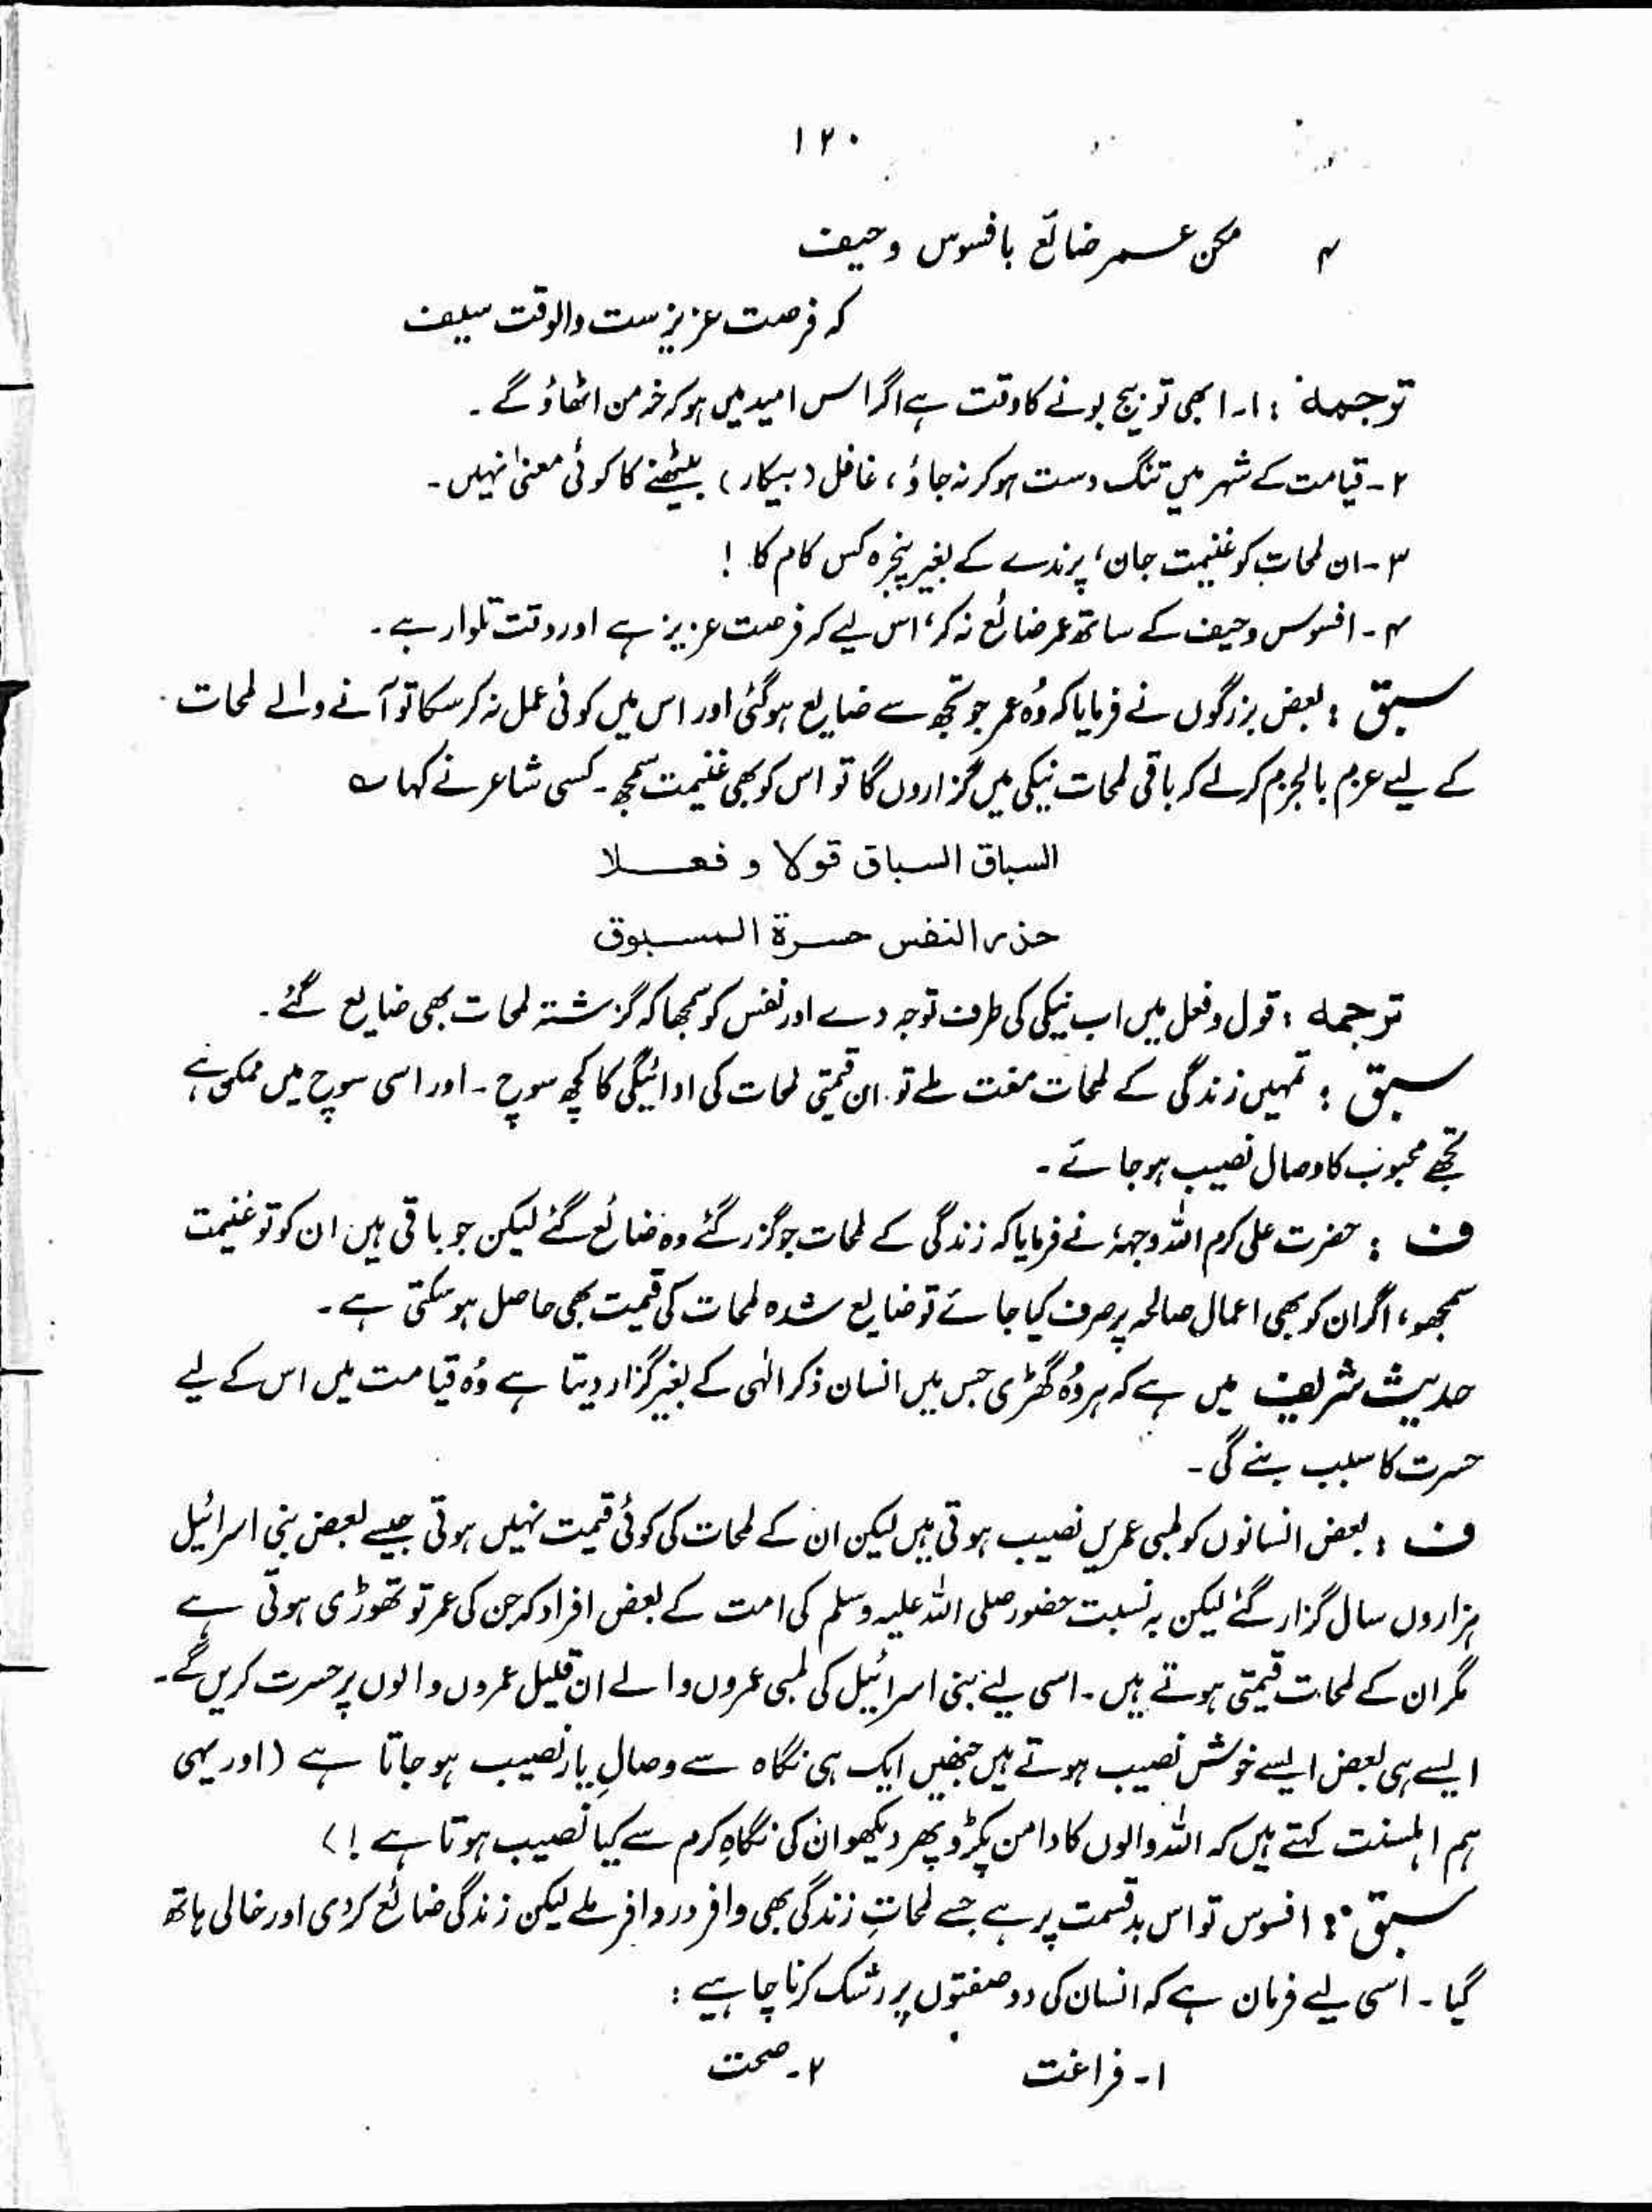 ۱۲۰
۴ مکن عمر ضائع بافسوس و حیف
کہ فرصت عزیزست والوقت سیف
توجمہ : ۱۔ ابھی تو بیج بونے کا وقت ہے اگر اس امید میں ہو کہ خرمن اٹھاؤ گے ۔
۲۔ قیامت کے شہر میں تنگ دست ہو کر نہ جاؤ ، غافل (بیکار) بیٹھنے کا کوئی معنیٰ نہیں ۔
۳۔ ان لمحات کو غنیمت جان ، پرندے کے بغیر پنجرہ کس کام کا !
۴۔ افسوس وحیف کے ساتھ عمر ضائع نہ کر ، اس لیے کہ فرصت عزیز ہے اور وقت تلوار ہے ۔
سبق : بعض بزرگوں نے فرمایا کہ وُہ عمر جو تجھ سے ضایع ہو گئی اور اس میں کوئی عمل نہ کر سکا تو آنے والے لمحات
کے لیے عزم بالجزم کر لے کہ باقی لمحات نیکی میں گزاروں گا تو اس کو بھی غنیمت سمجھ ۔ کسی شاعر نے کہا ؎
السباق السباق قولا و فعلا
حذر النفس حسرة المسبوق
ترجمہ : قول و فعل میں اب نیکی کی طرف توجہ دے اور نفس کو سمجھا کہ گزشتہ لمحات بھی ضایع گئے ۔
سبق : تمہیں زندگی کے لمحات مفت ملے تو ان قیمتی لمحات کی ادائیگی کا کچھ سوچ ۔ اور اسی سوچ میں ممکن ہے
تجھے محبوب کا وصال نصیب ہو جائے ۔
ف : حضرت علی کرم اللہ وجہہٗ نے فرمایا کہ زندگی کے لمحات جو گزر گئے وہ ضائع گئے لیکن جو باقی ہیں ان کو تو غنیمت
سمجھو ، اگر ان کو بھی اعمال صالحہ پر صرف کیا جائے تو ضایع شدہ لمحات کی قیمت بھی حاصل ہو سکتی ہے ۔
حدیث شریف میں ہے کہ ہر وُہ گھڑی جس میں انسان ذکر الٰہی کے بغیر گزار دیتا ہے وُہ قیامت میں اس کے لیے
حسرت کا سبب بنے گی ۔
ف : بعض انسانوں کو لمبی عمریں نصیب ہوتی ہیں لیکن ان کے لمحات کی کوئی قیمت نہیں ہوتی جیسے بعض بنی اسرائیل
ہزاروں سال گزار گئے لیکن بہ نسبت حضور صلی اللہ علیہ وسلم کی امت کے بعض افراد کہ جن کی عمر تو تھوڑی ہوتی ہے
مگر ان کے لمحات قیمتی ہوتے ہیں ۔ اسی لیے بنی اسرائیل کی لمبی عمروں والے ان قلیل عمروں والوں پر حسرت کریں گے ۔
ایسے ہی بعض ایسے خوش نصیب ہوتے ہیں جنھیں ایک ہی نگاہ سے وصالِ یار نصیب ہو جاتا ہے (اور یہی
ہم اہلسنت کہتے ہیں کہ اللہ والوں کا دامن پکڑو پھر دیکھو ان کی نگاہِ کرم سے کیا نصیب ہوتا ہے !)
سبق : افسوس تو اس بدقسمت پر ہے جسے لمحاتِ زندگی بھی وافر در وافر ملے لیکن زندگی ضائع کر دی اور خالی ہاتھ
گیا ۔ اسی لیے فرمان ہے کہ انسان کی دو صفتوں پر رشک کرنا چاہیے :
۱۔ فراغت ۲۔ صحت